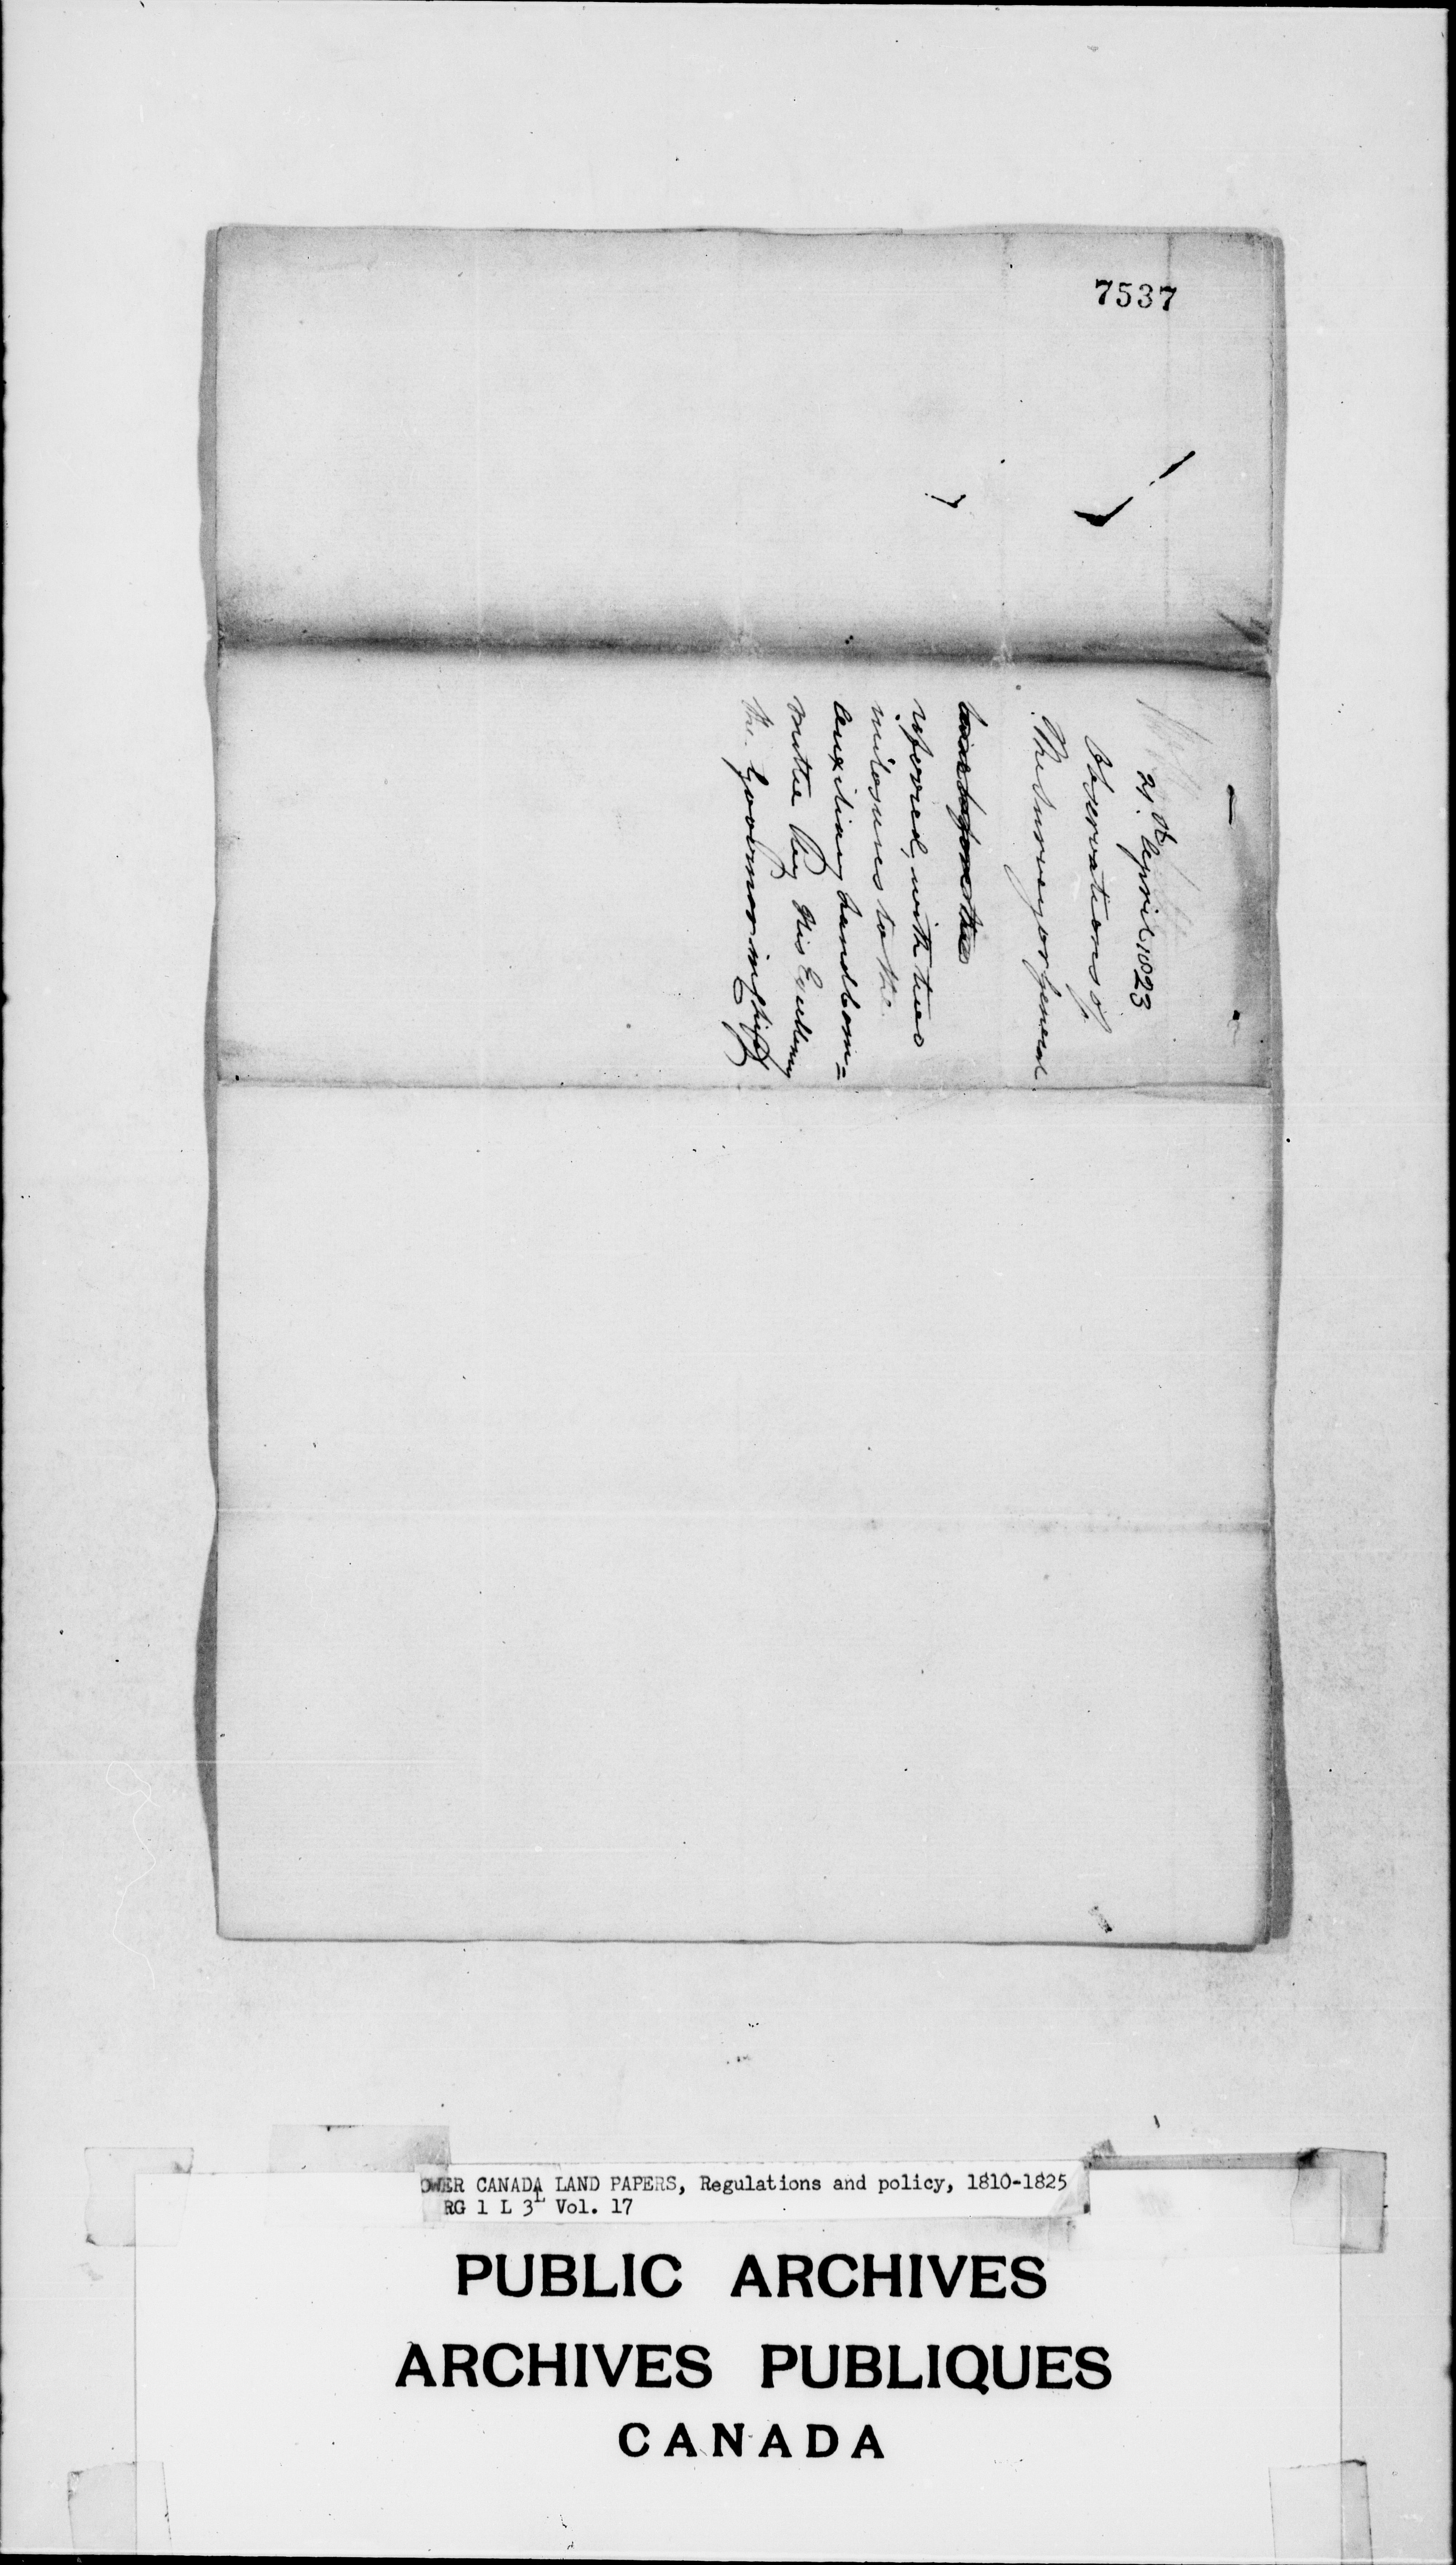 7537
21st April 1823
Observations of
The Surveyor General
referred, with two
inclosures to the
Auxiliary Land Com=
mittee By His Excellency
the Governor in Chief
OWER CANADA LAND PAPERS, Regulations and policy, 1810-1825
RG 1 L 3L Vol. 17
PUBLIC ARCHIVES
ARCHIVES PUBLIQUES
CANADA